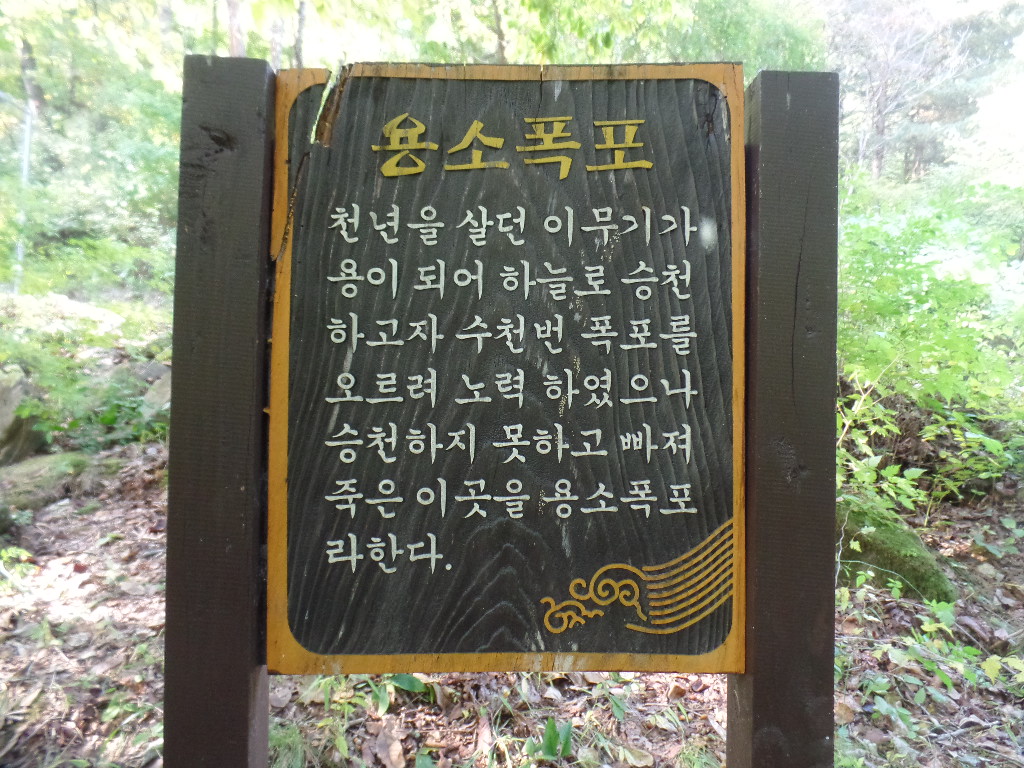 용소폭포
천년을 살던 이무기가
용이 되어 하늘로 승천
하고자 수천번 폭포를
오르려 노력 하였으나
승천하지 못하고 빠져
죽은 이곳을 용소폭포
라한다.